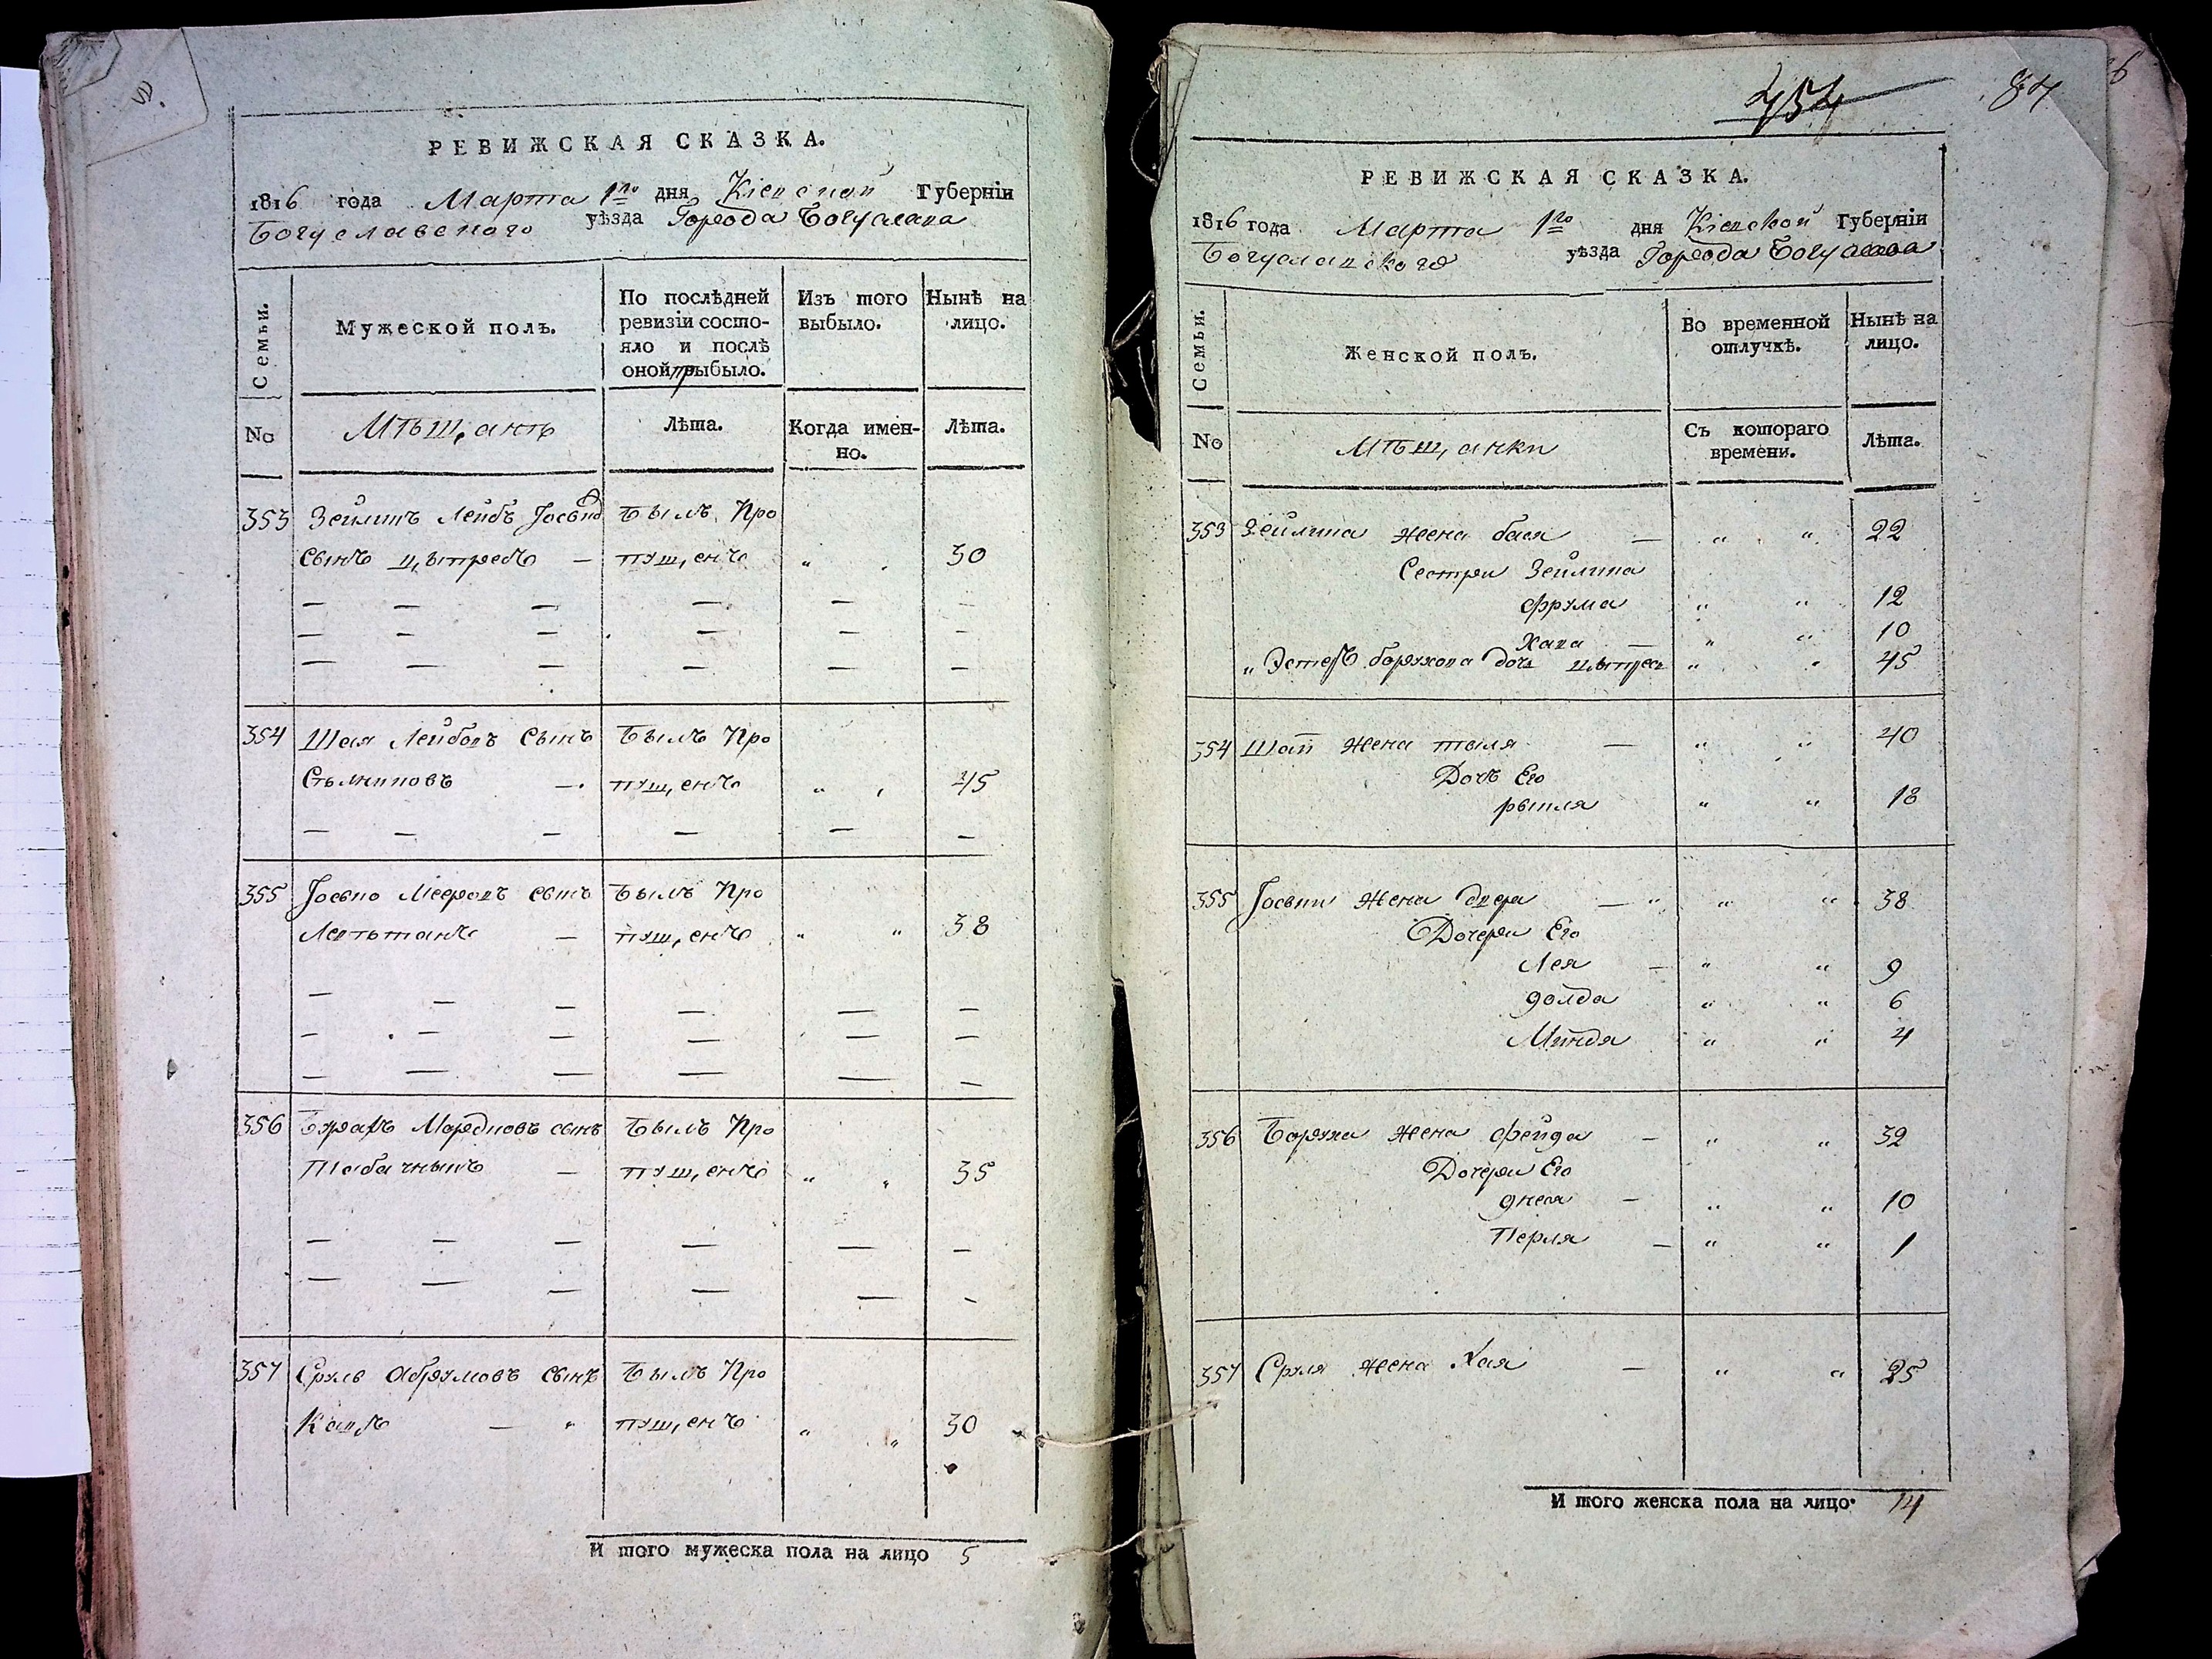 РЕВИЖСКАЯ СКАЗКА.
1816 года Марта 1го дня Кіевской Губерніи
Богуславского уѣзда Города Богуслава
Семьи.
Мужеской полъ.
По послѣдней ревизіи состо-
яло и послѣ
оной прибыло.
Изъ того выбыло.
Нынѣ на лицо.
No
Мѣщанъ
Лѣта.
Когда имен-
но.
Лѣта.
353 Зейлигъ Лейбъ сынъ Былъ Про
пущенъ " " 30
— — — — — —
— — — — — —
— — — — — —
354 Шая Лейбовъ Сынъ Былъ Про
— пущенъ " " 45
— — — — — —
355 Іосьпо Мееровъ сынъ Былъ Про
— пущенъ " " 38
— — — — — —
— — — — — —
— — — — — —
356 Мордковъ сынъ Былъ Про
Табачникъ — пущенъ " " 35
— — — — — —
— — — — — —
357 Сруль Абрумовъ Сынъ Былъ Про
— пущенъ " " 30
И того мужеска пола на лицо 5
454
84
РЕВИЖСКАЯ СКАЗКА.
1816 года Марта 1го дня Кіевской Губерніи
Богуславского уѣзда Города Богуслава
Семьи.
Женской полъ.
Во временной
отлучкѣ.
Нынѣ на
лицо.
No
Мѣщанки
Съ котораго
времени.
Лѣта.
353 Зейлига жена бася — " " 22
Сестри Зейлига
фрума " " 12
Хава — " " 10
" Эстеръ борухова дочь " " 45
354 Шаи жена тыля — " " 40
Дочь Его
рыпля " " 18
355 Іосьпи жена двера — " " 38
Дочери Его
Лея — " " 9
голда " " 6
Миндя " " 4
356 Боруха жена фейга — " " 32
Дочери Его
гнеся — " " 10
Перля — " " 1
357 Сруля жена Хая — " " 25
И того женска пола на лицо 14